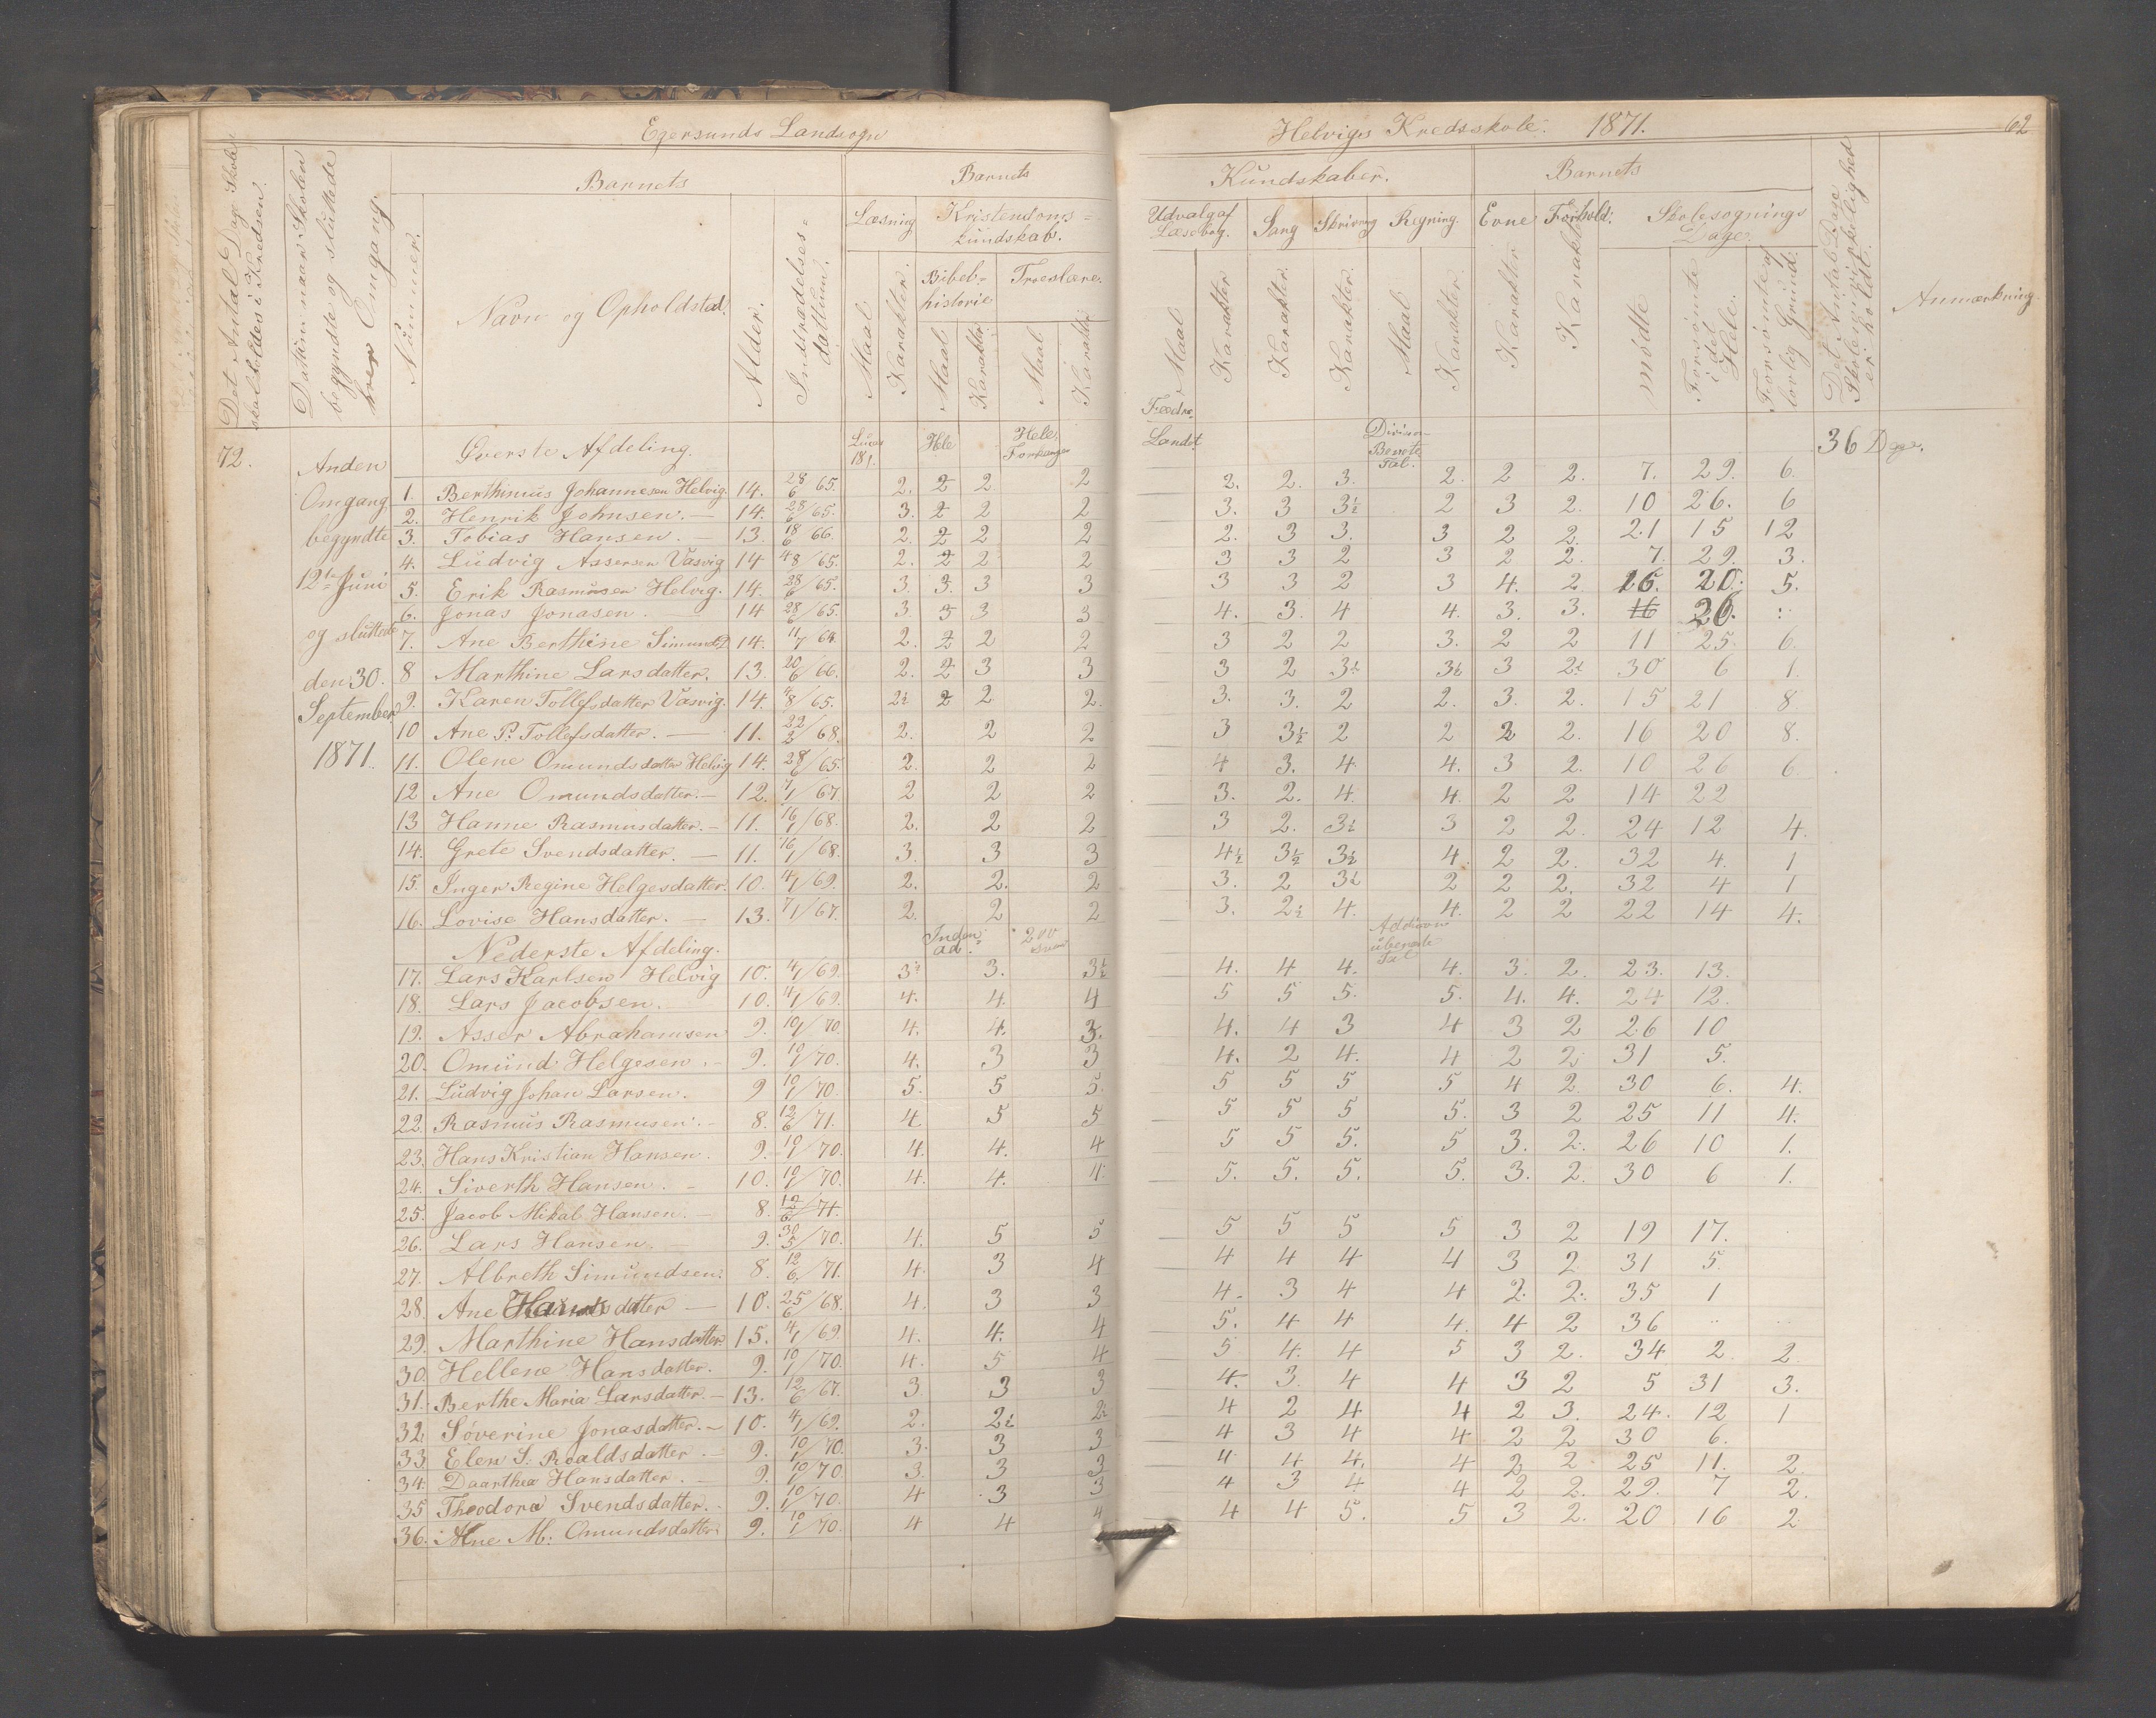 Egersunds Landsogn
Helvigs Kredsskole. 1871. 62
Det Antal Dage Skole skal holdes i Kredsen.
Datum naar Skolen begyndte og sluttede hver Omgang.
Nummer.
Barnets
Navn og Opholdsted.
Alder.
Indtrædelses-datum.
Barnets
Læsning
Kristendoms-kundskab.
Maal
Karakter.
Bibel-historie
Maal
Karakter
Troeslære.
Maal
Karakter
Kundskaber.
Udvalg af Læsebog.
Maal
Karakter
Sang
Karakter.
Skrivning
Karakter.
Regning.
Maal
Karakter.
Barnets
Evne
Karakter
Forhold:
Karakter
Skolesøgnings Dage.
mødte
Forsømte i det Hele.
Forsømte af lovlig Grund.
Det Antal Dage Skolen i Virkelighed er holdt.
Anmærkning.
72.
Anden
Omgang
begyndte
12te Juni
og sluttede
den 30.
September
1871.
Øverste Afdeling. Hele Hele Landet. Benævnte Tal. 36 Dage.
1. Berthinius Johannesen Helvig. 14. 28/6 65. 2. 2 2 2 2. 2. 3. 2. 2 2. 7. 29. 6.
2. Henrik Johnsen. — 14. 28/6 65. 3. 2 2 2 3. 3 3½ 2 3 2. 10 26. 6
3. Tobias Hansen. — 13. 18/6 66. 2. 2 2 2 2. 3 3. 3 2 2. 21 15 12
4. Ludvig Assersen Vasvig 14 4/8 65. 2. 2 2 2 3 3 2 3 2 2. 7. 29. 3.
5. Erik Rasmusen Helvig. 14. 28/6 65. 3. 3. 3 3 3 3 2 3 4. 2 16. 20. 5.
6. Jonas Jonasen. 14 28/6 65. 3. 3 3 3 4. 3. 4 4. 3. 3. 16 36.
7. Ane Berthine Simunsd 14. 11/7 64. 2. 2 2 2 3 2 2 3. 2 2 11 25. 6.
8 Marthine Larsdatter. 13. 20/6 66. 2. 2 3 3 3 2 3½ 3½ 3 2½ 30 6 1.
9. Karen Tollefsdatter Vasvig. 14. 4/8 65. 2½ 2 2 2. 3. 3. 2 2. 3. 2. 15 21 8
10 Ane P. Tollefsdatter. — 11. 22/2 68. 2. 2 2 3 3½ 2 2 2 2. 16 20 8.
11. Olene Omundsdatter Helvig 14. 28/6 65. 2. 2 2 4 3. 4. 4. 3 2. 10 26 6
12 Ane Omundsdatter. — 12. 7/1 67. 2 2 2 3. 2. 4. 4. 2 2 14 22
13 Hanne Rasmusdatter. — 11. 16/1 68. 2. 2 2 3 2. 3½ 3 2 2. 24 12 4.
14. Grete Svendsdatter. — 11. 16/1 68. 3. 3 3 4½ 3½ 3½ 4. 2 2. 32 4. 1
15. Inger Regine Helgesdatter. 10. 4/1 69. 2. 2. 2 3. 2 3½ 2 2 2. 32 4 1
16. Lovise Hansdatter. — 13. 7/1 67. 2. 2 2 3. 2½ 4. 4. 2 2 22 14 4.
Nederste Afdeling.
17. Lars Karlsen Helvig 10. 4/1 69. 3½ 3. 3½ 4. 4 4. 4. 3. 2. 23. 13.
18. Lars Jacobsen. 10. 4/1 69. 4. 4. 4 5 5 5. 5. 4. 4. 24 12.
19. Asser Abrahamsen 9. 10/1 70. 4. 4. 3. 4. 4 3 4 3 2 26 10
20. Omund Helgesen. — 9. 10/1 70. 4. 3 3 4. 2 4. 4 2 2 31 5.
21. Ludvig Johan Larsen. 9 10/1 70. 5. 5 5. 5 5 5 5 4 2 30 6. 4.
22. Rasmus Rasmusen. — 8. 12/6 71. 4. 5 5 5 5 5 5. 3 2 25 11 4.
23. Hans Kristian Hansen. 9. 10/1 70. 4. 4. 4 5 5 5. 5 3. 2. 26 10 1.
24. Siverth Hansen. — 10. 10/1 70. 4. 4. 4. 5. 5. 5. 5. 3. 2. 30 6 1.
25. Jacob Mikal Hansen. — 8. 12/6 71.
26. Lars Hansen. — 9. 30/5 70. 4. 5 5 5 5 5 5 3 2 19 17.
27. Albreth Simundsen. 8. 12/6 71. 4. 3 4 4 4 4 4 3 2 31 5.
28. Ane Hansdatter — 10. 25/6 68. 4. 3 3 4. 3 4 4 2. 2. 35 1
29. Marthine Hansdatter. 15. 4/1 69. 4. 4. 4 5. 4 4 4. 4 2 36
30. Hellene Hansdatter. 9. 10/1 70. 4. 5 4 5 4. 4 5 3 2. 34 2. 2.
31. Berthe Maria Larsdatter. — 13. 12/6 67. 3 3 3 4. 3. 4 4 3 2 5 31 3.
32. Søverine Jonasdatter. — 10. 4/1 69. 2. 2½ 2½ 4 2 4 4 2 3. 24. 12 1
33 Elen S. Roaldsdatter. — 9. 10/1 70. 3. 3 3 4 3 4 4 2 2 30 6.
34. Daarthea Hansdatter. — 9. 10/1 70. 3. 3 3 4 4 4. 4 2 2 25 11. 2.
35 Theodora Svendsdatter. 9. 10/1 70. 4 3 3 4 3 4 4 2 2. 29. 7 2.
36. Ane M. Omundsdatter. 9. 10/1 70. 4 4 4 4 4 5. 5 3 2. 20 16 2